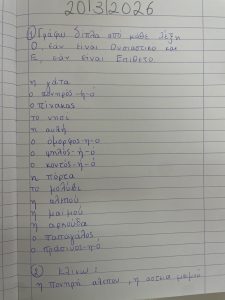 20/3/2026
① Γράφω δίπλα από κάθε λέξη
Ο, εάν είναι Ουσιαστικό και
Ε, εάν είναι Επίθετο.
η γάτα
ο πονηρός-η-ο
ο πίνακας
το νησί
η αυλή
ο όμορφος-η-ο
ο ψηλός-ή-ό
ο κοντός-ή-ό
η πόρτα
το μολύβι
η αλεπού
η μαϊμού
η αρκούδα
ο παπαγάλος
ο πράσινος-η-ο
② Κλίνω:
η πονηρή αλεπού, η αστεία μαϊμού